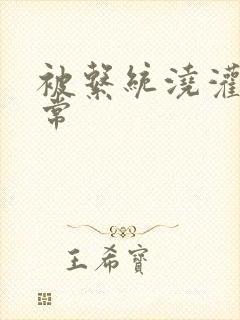 被繫統澆灌
常
王希寶